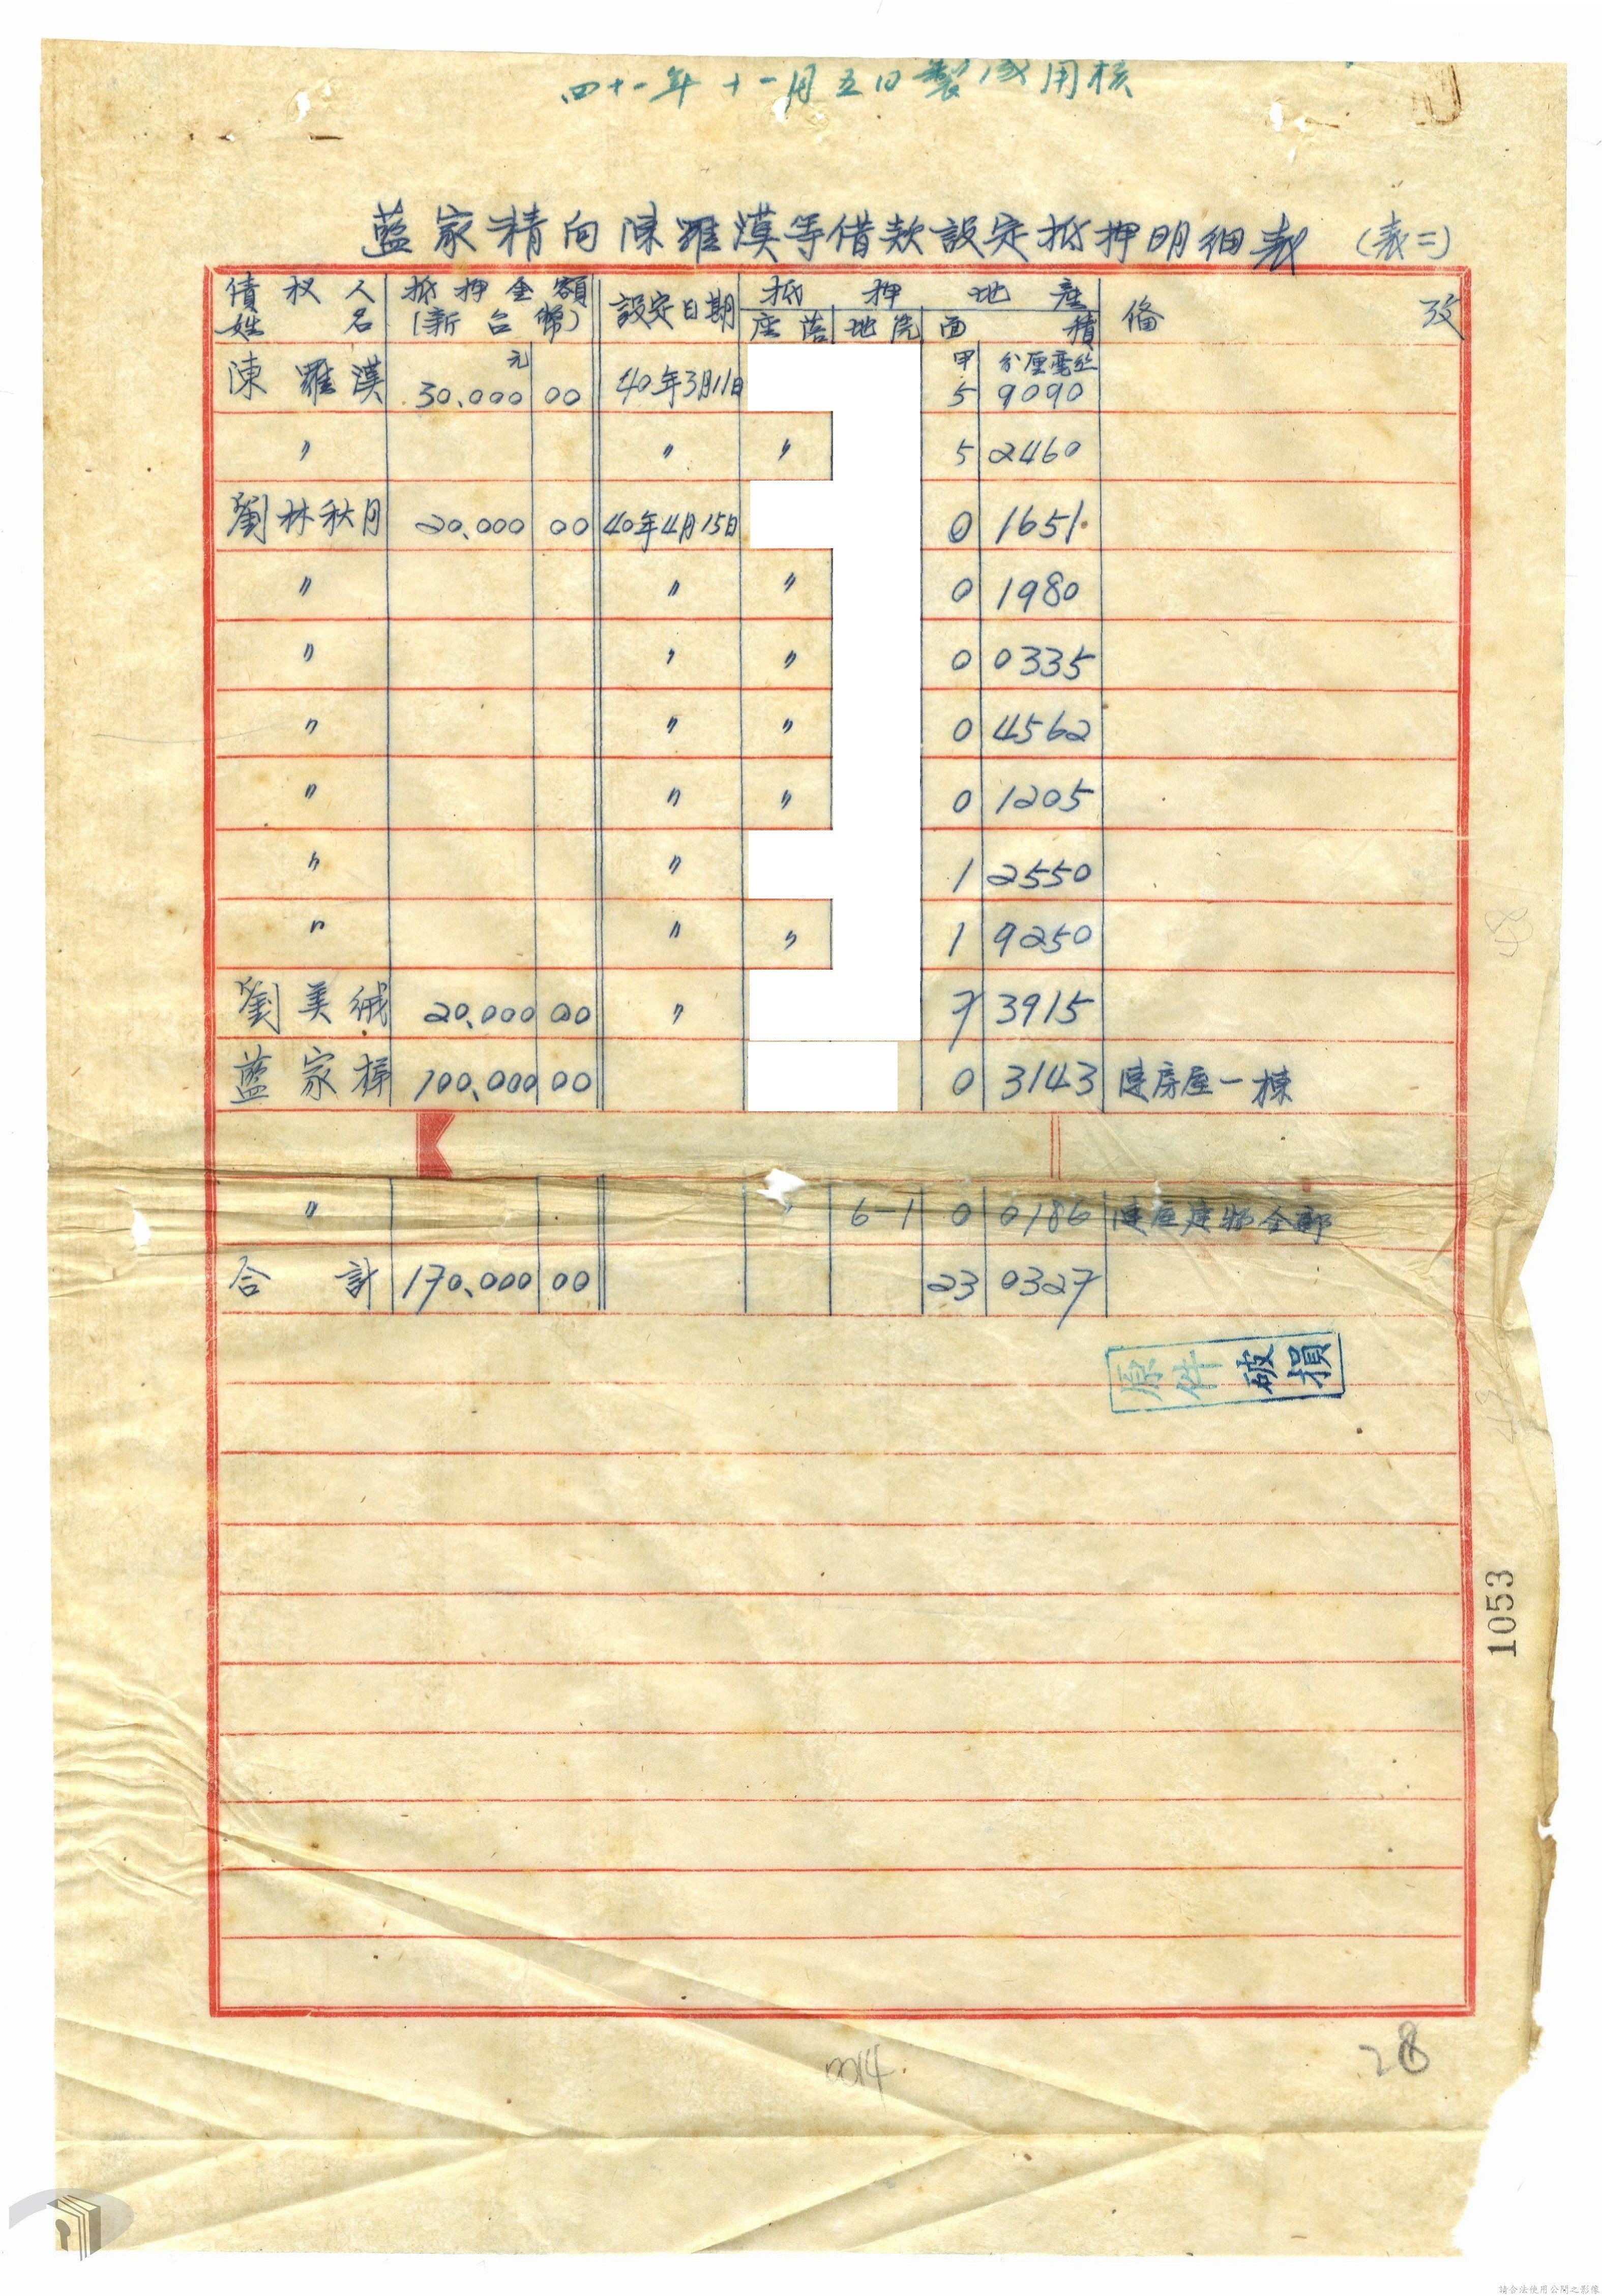 四十一年十一月五日製成用核
藍家精向陳羅漢等借款設定抵押明細表 (表二)
債权人姓名 抵押金額(新台幣) 設定日期 抵押地產 備攷
座落 地号 面積
元 甲 分厘毫丝
陳羅漢 30,000 00 40年3月11日 5 9090
〃 〃 〃 5 2460
劉林秋月 20,000 00 40年4月15日 0 1651
〃 〃 〃 0 1980
〃 〃 〃 0 0335
〃 〃 〃 0 4562
〃 〃 〃 0 1205
〃 〃 1 2550
〃 〃 〃 1 9250
劉美絨 20,000 00 〃 7 3915
藍家 100,000 00 0 3143 連房屋一棟
〃 〃 6-1 0 0186 連座建物全部
合計 170,000 00 23 0327
原件破損
1053
0014
28
請合法使用公開之影像